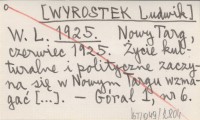 [WYROSTEK Ludwik]
W. L. 1925. Nowy Targ,
czerwiec 1925. Życie kul-
turalne i polityczne zaczy-
na się w Nowym Targu wzma-
gać [...]. — Goral 1, nr 6.